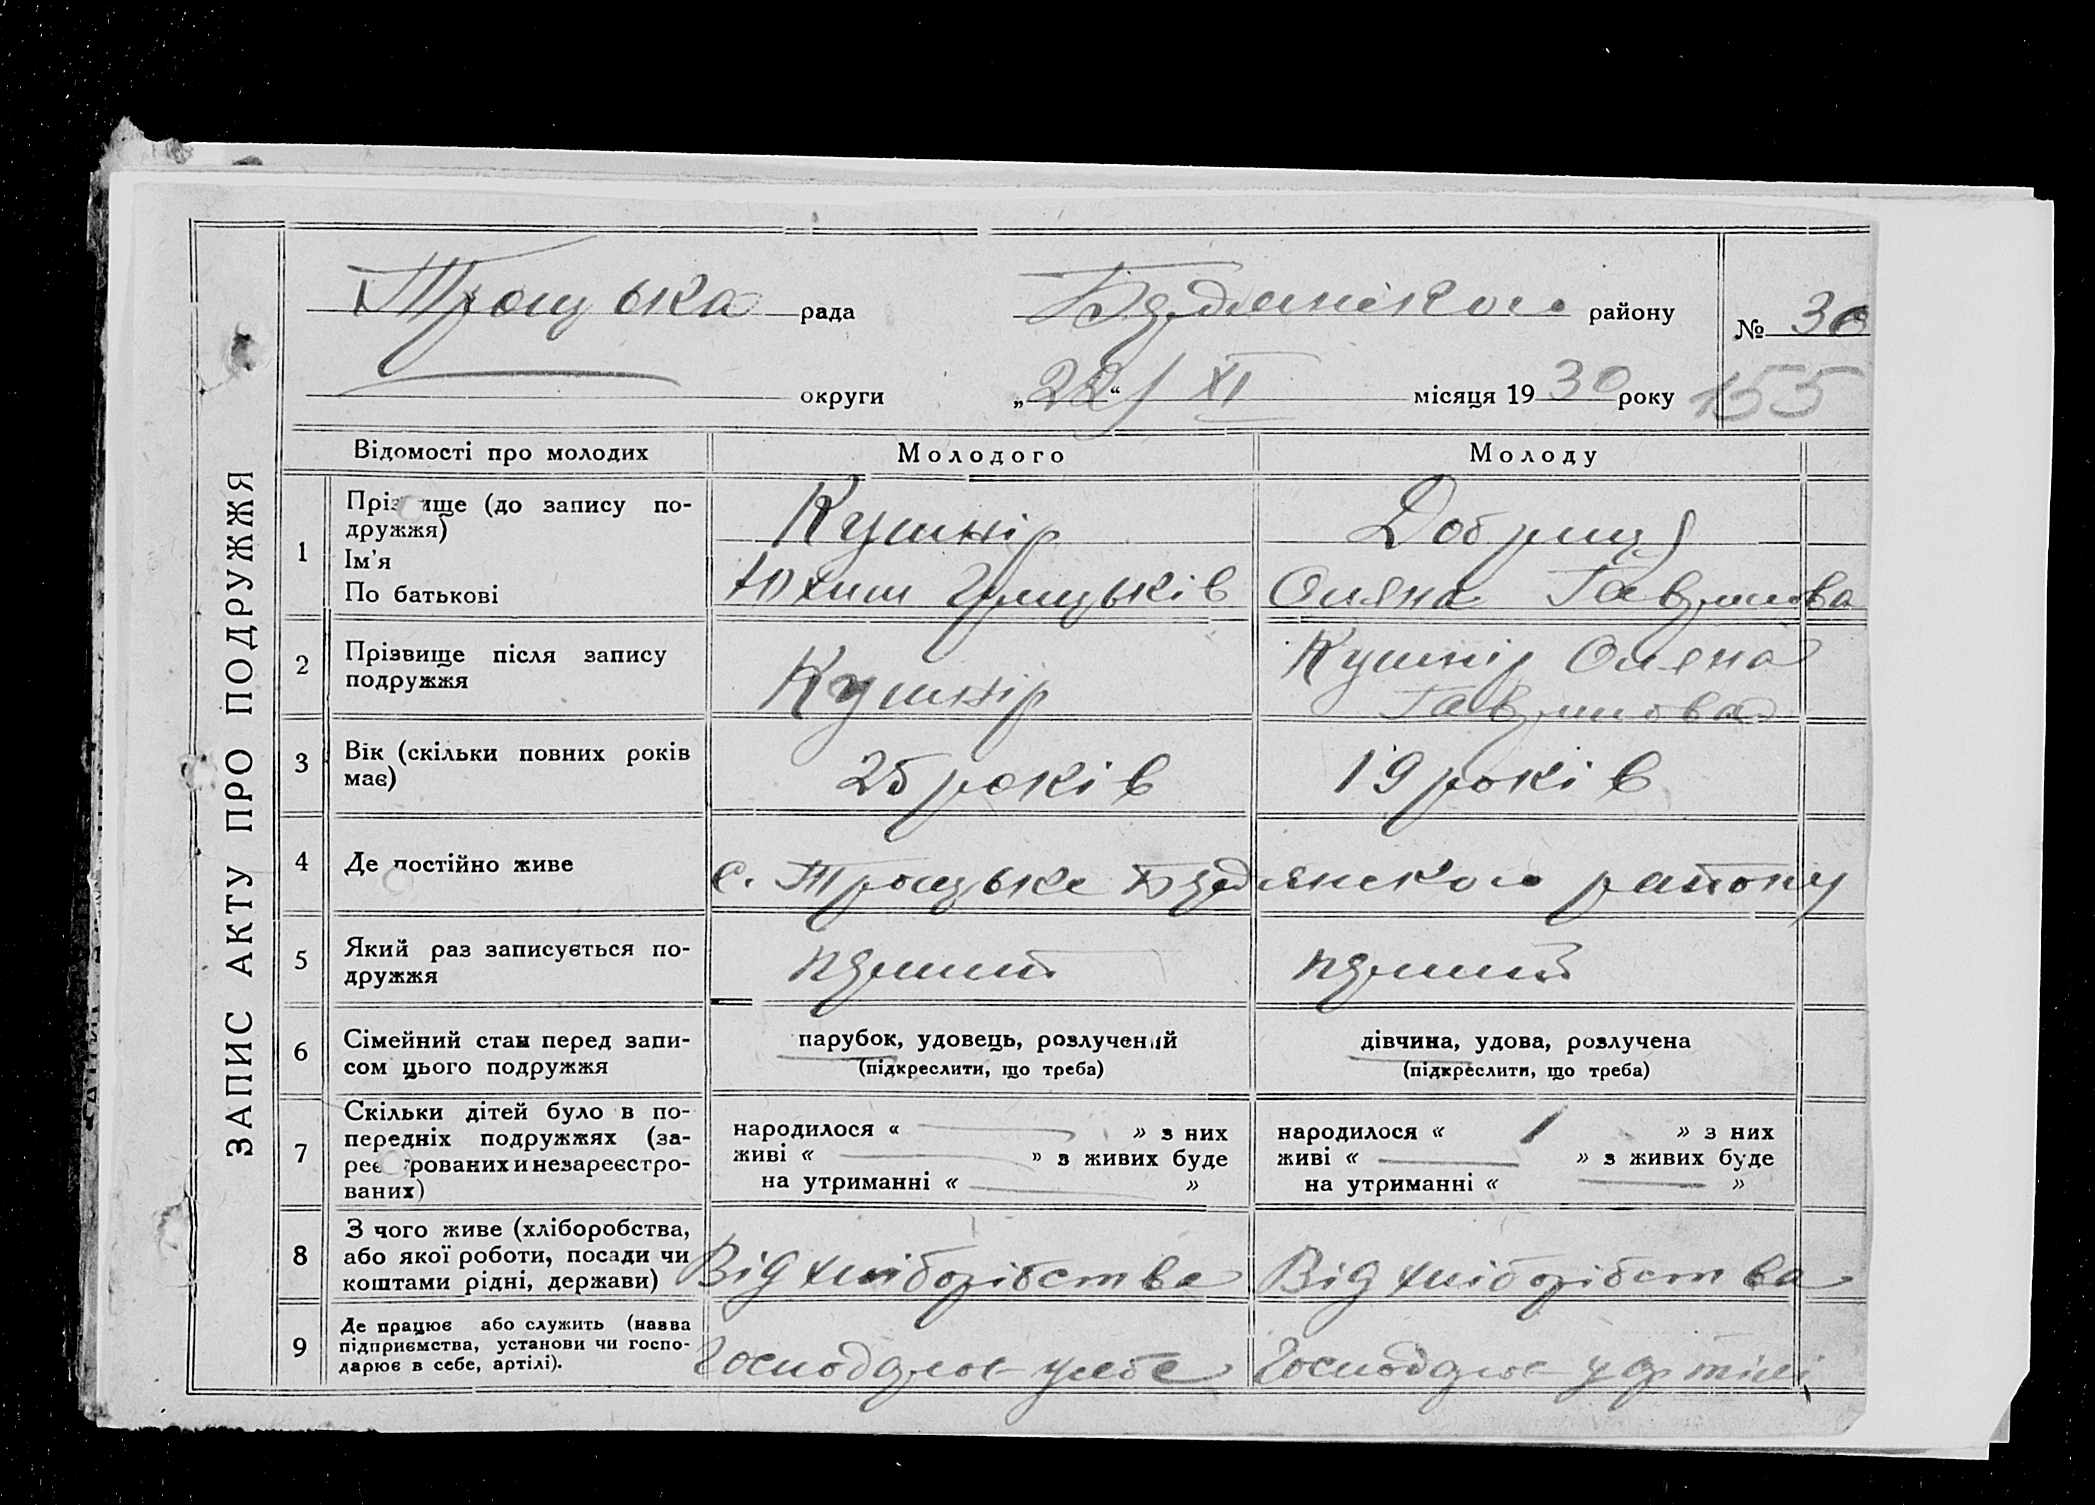 ЗАПИС АКТУ ПРО ПОДРУЖЖЯ
Троцька рада Будянського району № 30
округи „22“ XI місяця 1930 року 155
Відомості про молодих Молодого Молоду
1 Прізвище (до запису по-
дружжя) Кушнір Добриця
Ім'я
По батькові Юхим Грицьків Оляна Гаврилова
2 Прізвище після запису
подружжя Кушнір Кушнір Оляна
Гаврилова
3 Вік (скільки повних років
має) 25 років 19 років
4 Де постійно живе с. Троцьке Будянского району
5 Який раз записується по-
дружжя перший перший
6 Сімейний стан перед запи-
сом цього подружжя
парубок, удовець, розлучений
(підкреслити, що треба)
дівчина, удова, розлучена
(підкреслити, що треба)
7 Скільки дітей було в по-
передніх подружжях (за-
реєстрованих и незареєстро-
ваних)
народилося « » з них
живі « » з живих буде
на утриманні « »
народилося « 1 » з них
живі « » з живих буде
на утриманні « »
8 З чого живе (хліборобства,
або якої роботи, посади чи
коштами рідні, держави) Від хліборібства Від хліборібства
9 Де працює або служить (назва
підприємства, установи чи госпо-
дарює в себе, артілі). Господарює у себе Господарює у артілі